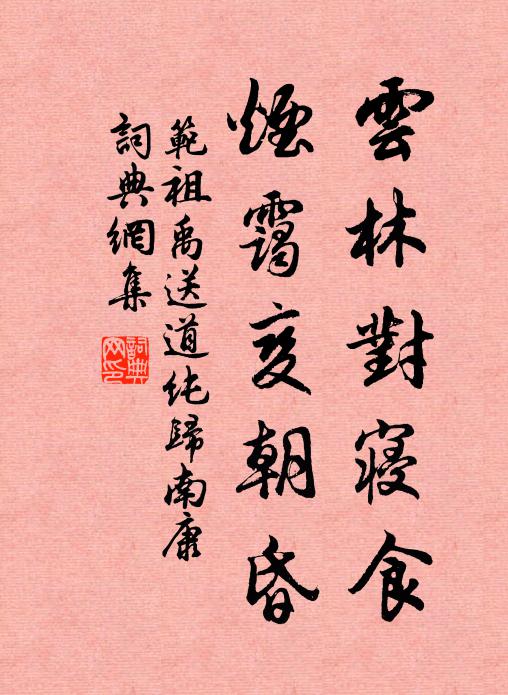 雲林對寢食
煙靄变朝昏
範祖禹送道純歸南康
詞典網集
詞典
网印